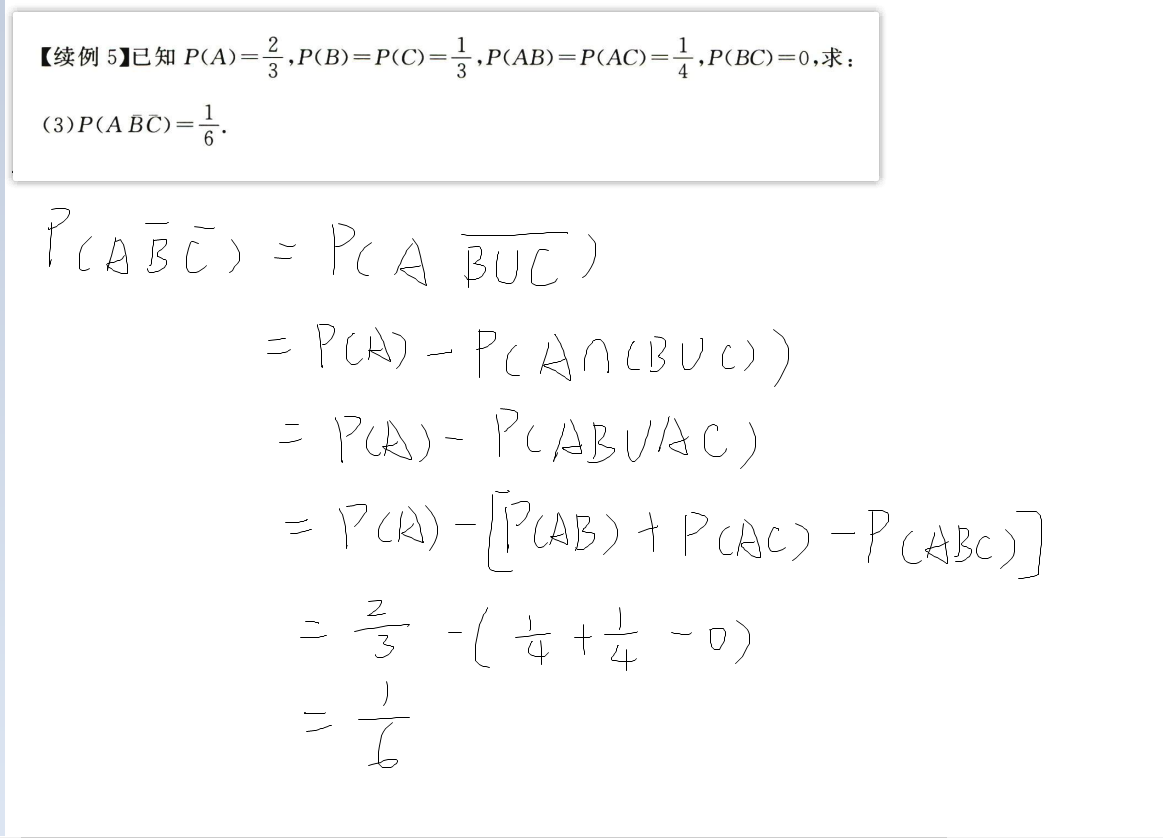 【续例 5】已知 P(A)=2/3,P(B)=P(C)=1/3,P(AB)=P(AC)=1/4,P(BC)=0,求:
(3)P(A B̄C̄)=1/6.
P(AB̄C̄) = P(A \overline{BUC})
= P(A) - P(A∩(BUC))
= P(A) - P(ABUAC)
= P(A) - [P(AB) + P(AC) - P(ABC)]
= 2/3 - (1/4 + 1/4 - 0)
= 1/6